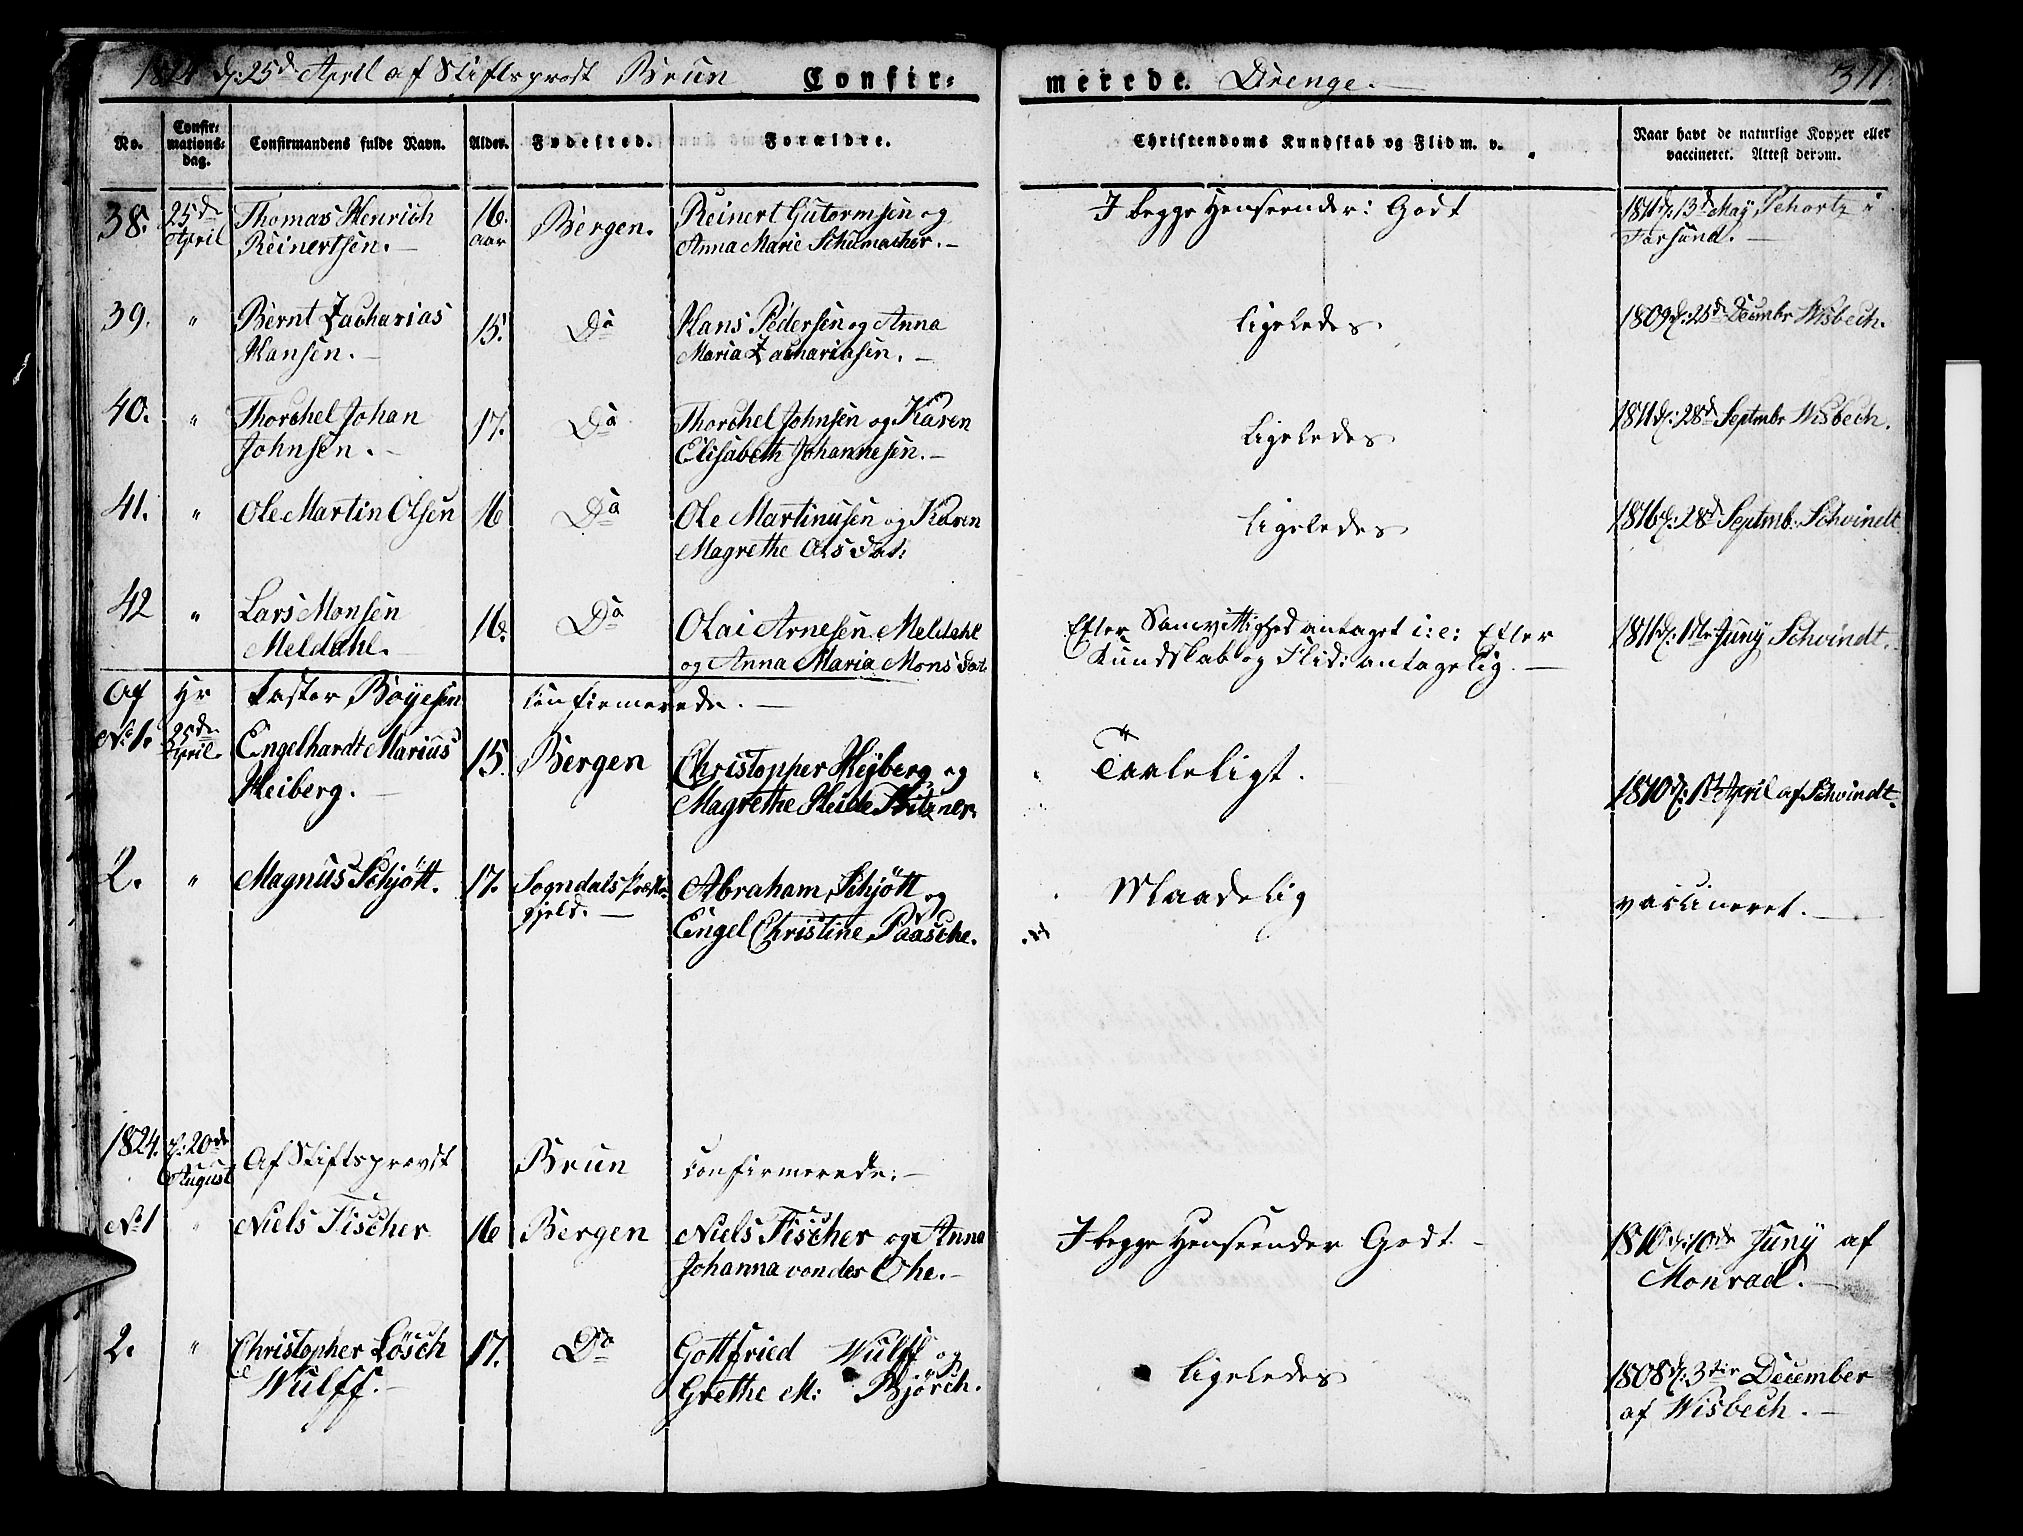 1824 d: 25d April af Stiftsprost Brun Confir= merede. Drenge.— 311.
No. Confir= mations= dag. Confirmandens fulde Navn. Alder. Fødested. Forældre. Christendoms Kundskab og Flid m. v. Naar havt de naturlige Kopper eller vaccineret. Attest derom.
38. 25de Thomas Henrich 16. Bergen. Reinert Gutormsen og I begge Henseender: Godt 1811 d: 13d May, Schartz i
April Reinertsen.— aar Anna Marie Schumacher.— Farsund.—
39. " Bernt Zacharias 15. Do Hans Pedersen og Anna ligeledes. 1809 d: 25d Decembr Wisbech.
Hansen.— Maria Zachariasen.—
40. " Thorchel Johan 17. Do Thorchel Johnsen og Karen Ligeledes 1811 d: 28d Septmbr Wisbech.
Johnsen.— Elisabeth Johannesen.—
41. " Ole Martin Olsen 16 Do Ole Martinusen og Karen Ligeledes 1816 d: 28d Septmb. Schvindt
Magrethe Ols Dat:
42 " Lars Monsen 16. Do Olai Arnesen Meldahl Efter Samvittighed antaget i:e: Efter 1811 d: 11te Juny Schvindt.
Meldahl.— og Anna Maria Mons Dat. Kundskab og Flid: antagelig.—
Af Hr Pastor Boyesen confirmerede.—
No 1. 25de Engelhardt Marius 15. Bergen Christopher Heiberg og Taaleligt. 1810 d: 1st April af Schvindt.
April. Heiberg.— Magrethe Heide Fritzner.
2. " Magnus Schjött. 17. Sogndals Præste= Abraham Schjött og Maadelig vaccineret.—
gjeld.— Engel Christine Paasche.
1824. d: 20de August Af Stiftsprovst Brun confirmerede:—
No 1 " Niels Fischer 16 Bergen Niels Fischer og Anna I begge Henseender Godt— 1810 d: 10de Juny af
Johanna von der Ohe.— Monrad.—
2. " Christopher Lösch 17. Do Gottfried Wulff og ligeledes 1808 d: 3die December
Wulff.— Grethe M: Björch. af Wisbech.—